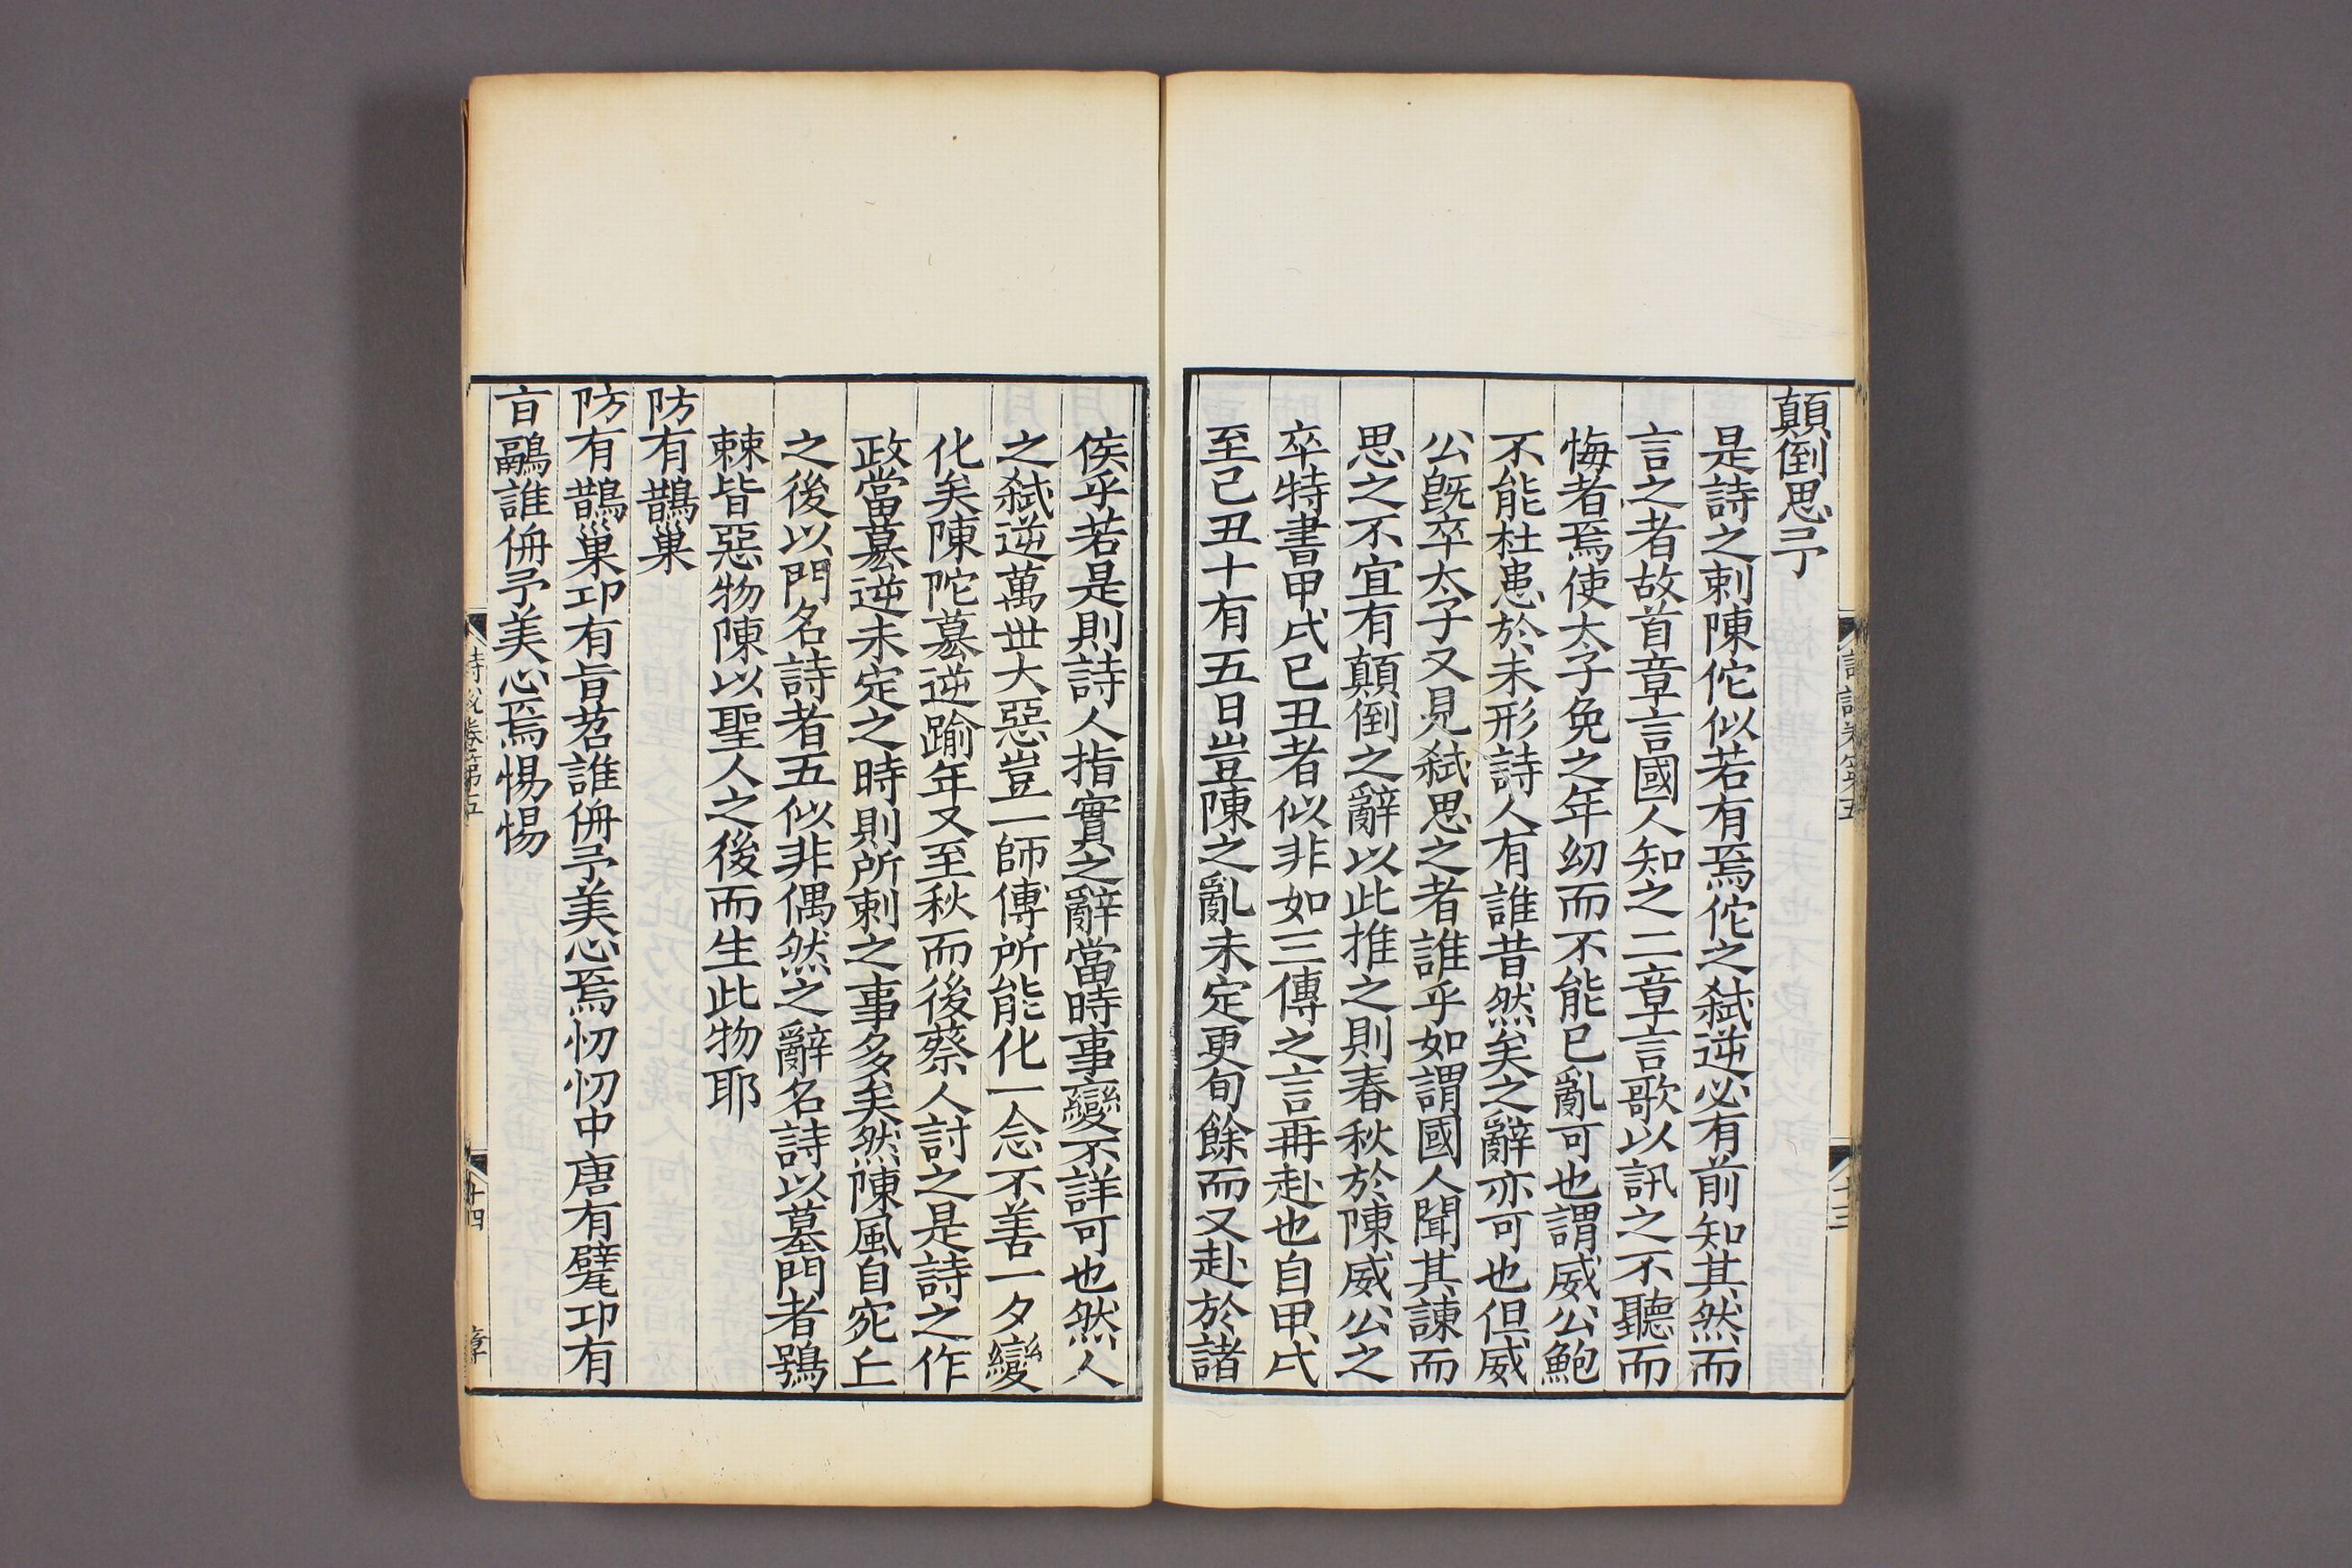 顛倒思予
是詩之刺陳佗似若有焉佗之弑逆必有前知其然而
言之者故首章言國人知之二章言歌以訊之不聽而
悔者焉使太子免之年㓜而不能已亂可也謂威公鮑
不能杜患於未形詩人有誰昔然矣之辭亦可也但威
公旣卒太子又見弑思之者誰乎如謂國人聞其諫而
思之不宜有顛倒之辭以此推之則春秋於陳威公之
卒特書甲戌己丑者似非如三傳之言再赴也自甲戌
至己丑十有五日豈陳之亂未定更旬餘而又赴於諸
詩說卷第五
十三
侯乎若是則詩人指實之辭當時事變不詳可也然人
之弑逆萬世大惡豈一師傅所能化一念不善一夕變
化矣陳陀簒逆踰年又至秋而後蔡人討之是詩之作
政當簒逆未定之時則所刺之事多矣然陳風自宛丘
之後以門名詩者五似非偶然之辭名詩以墓門者鴞
棘皆惡物陳以聖人之後而生此物耶
防有鵲巢
防有鵲巢卭有旨苕誰侜予美心焉忉忉中唐有甓卭有
旨鷊誰侜予美心焉惕惕
詩說卷第五
十四